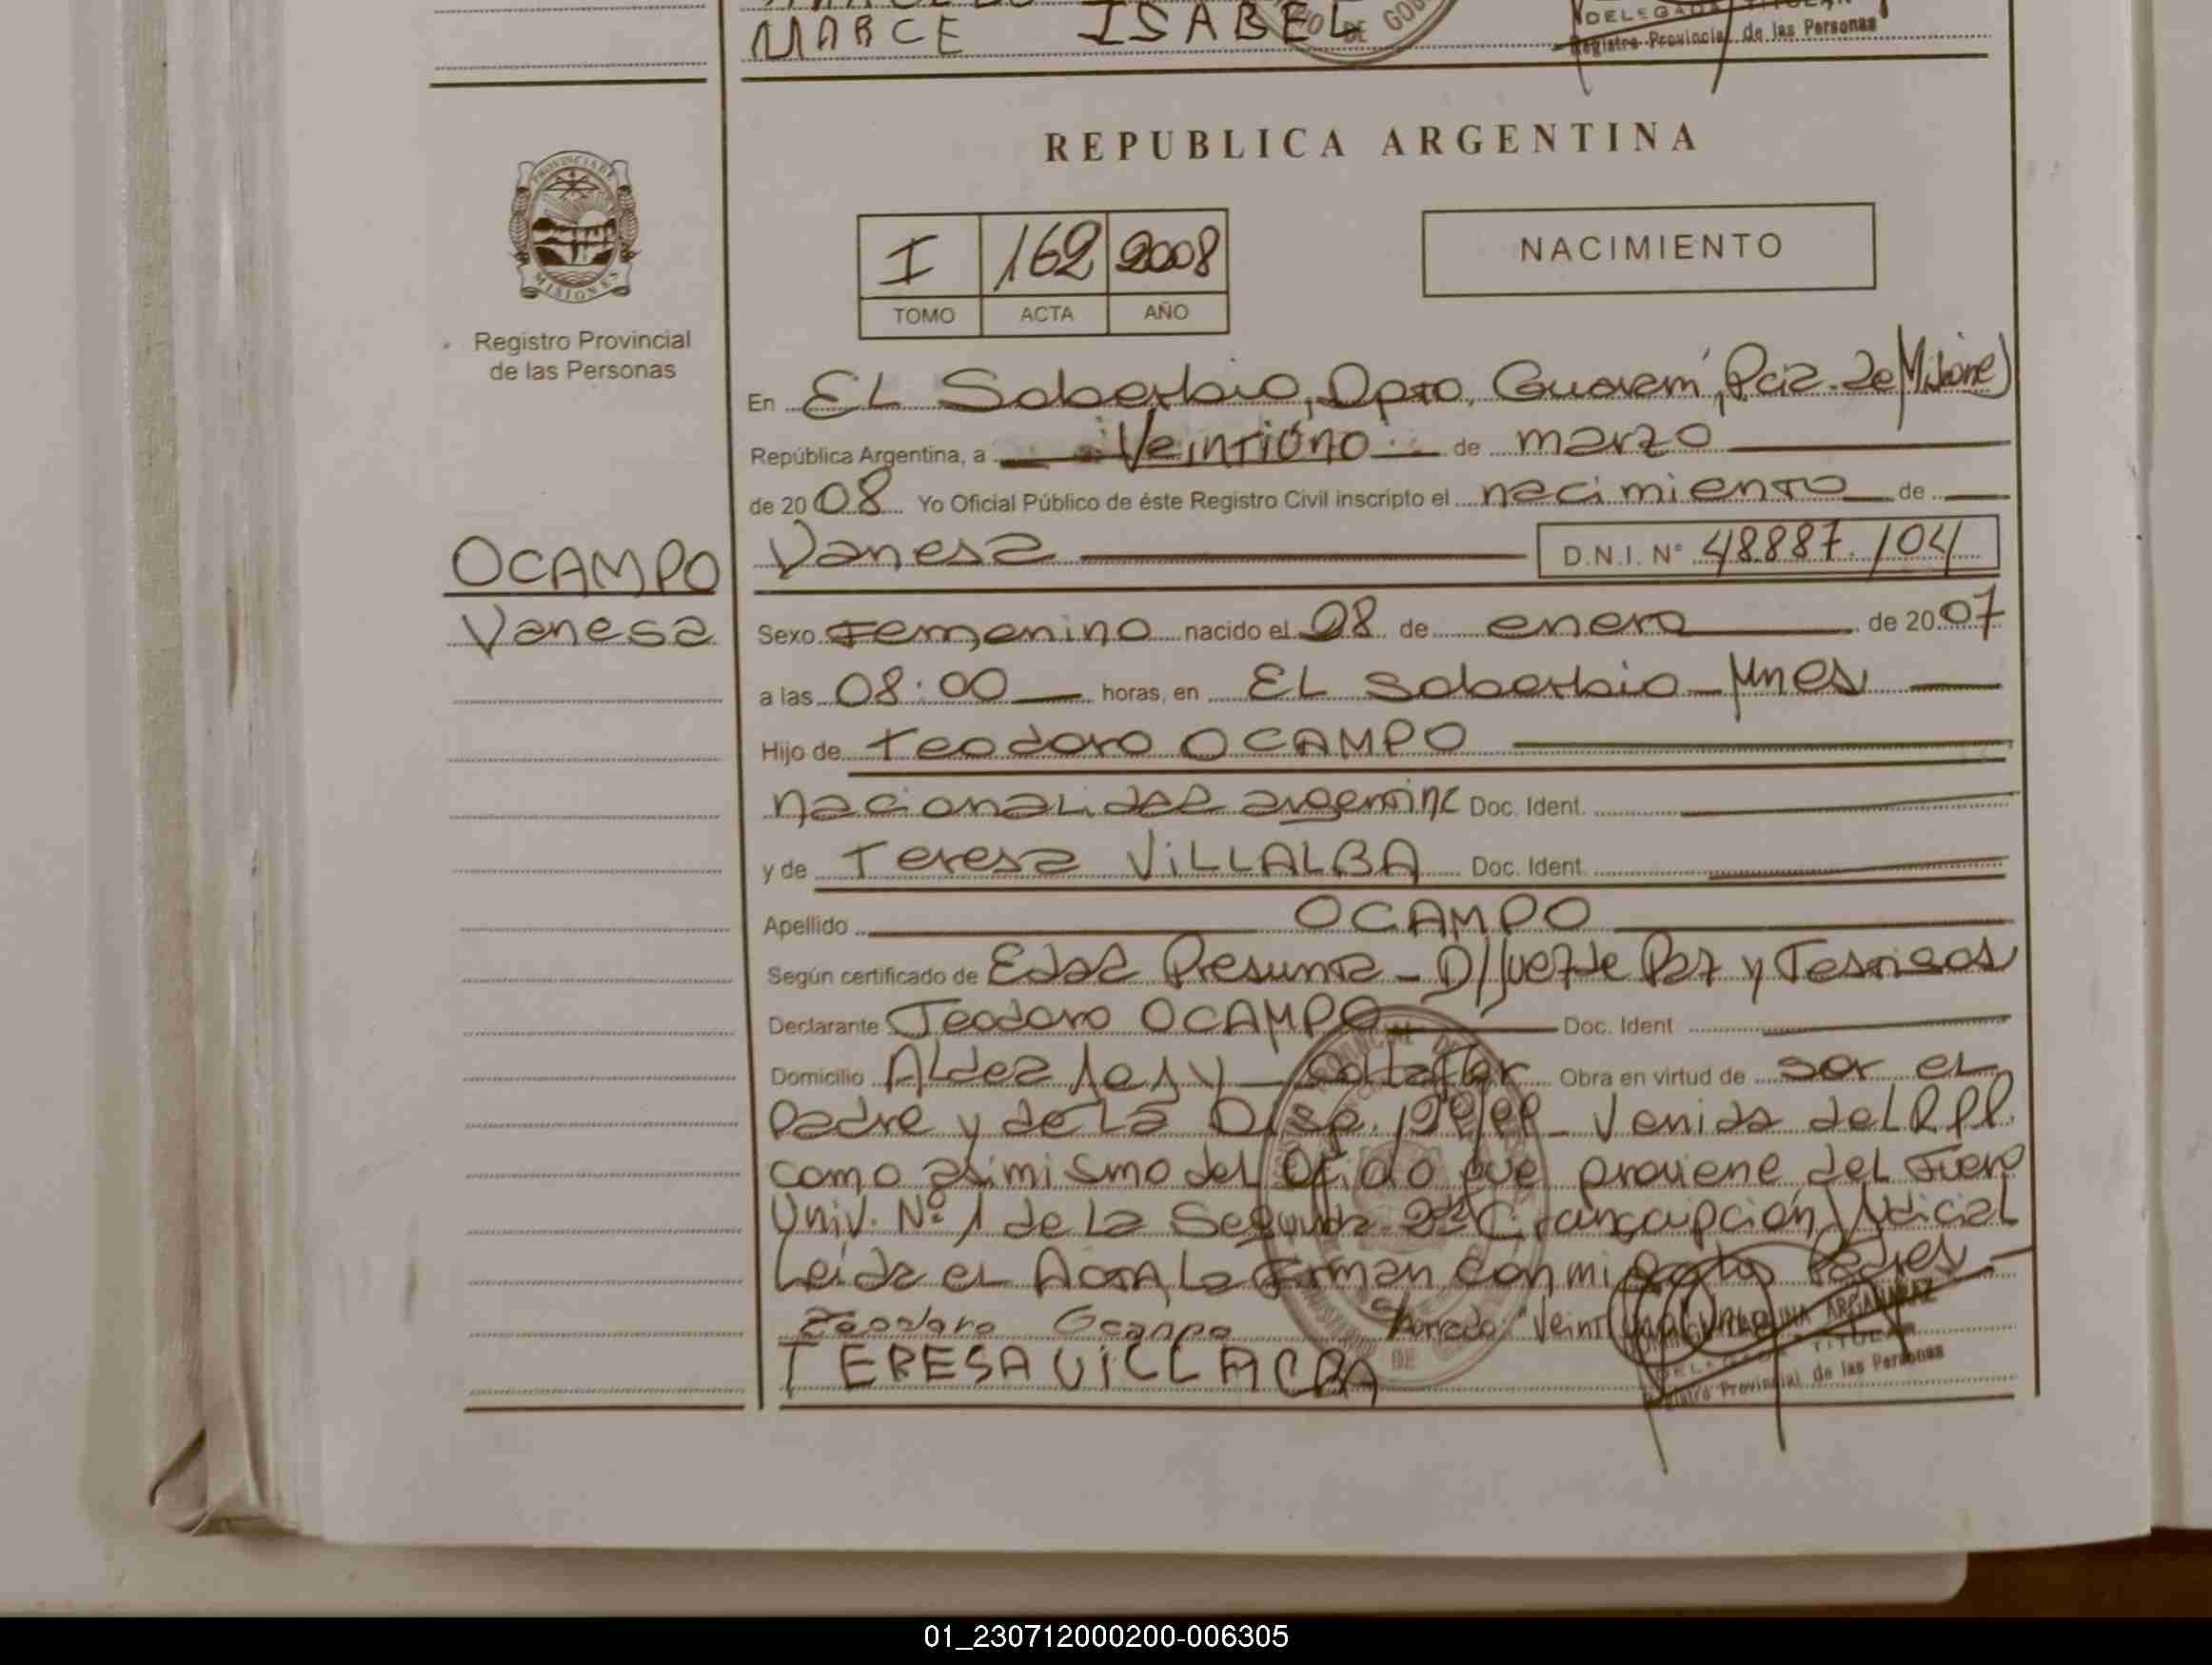 MARCE ISABEL
DELEGADA TITULAR
Registro Provincial de las Personas
REPUBLICA ARGENTINA
PROVINCIA DE
MISIONES
Registro Provincial
de las Personas
I 162 2008
TOMO ACTA AÑO
NACIMIENTO
En EL Soberbio, Dpto, Guaraní, Pcia. de Misiones
República Argentina, a Veintiuno de marzo
de 2008 Yo Oficial Público de éste Registro Civil inscripto el nacimiento de
OCAMPO
Vanesa
Vanesa D.N.I. Nº 48887.104
Sexo Femenino nacido el 08 de enero de 2007
a las 08:00 horas, en EL Soberbio Mnes
Hijo de Teodoro OCAMPO
nacionalidad argentina Doc. Ident.
y de Teresa ViLLALBA Doc. Ident.
Apellido OCAMPO
Según certificado de Edad Presunta - D/Juez de Paz y Testigos
Declarante Teodoro OCAMPO Doc. Ident
Domicilio Aldea Jejy Obra en virtud de ser el
Padre y de La Disp. Venida del R.P.P.
como asimismo del Oficio que proviene del Fuero
Univ. Nº 1 de La Segunda 2da Circunscripción Judicial
Leida el Acta La Firman Conmigo Los Padres
Teodoro Ocampo
TERESA ViLLACBA
DELEGADA TITULAR
Registro Provincial de las Personas
01_230712000200-006305